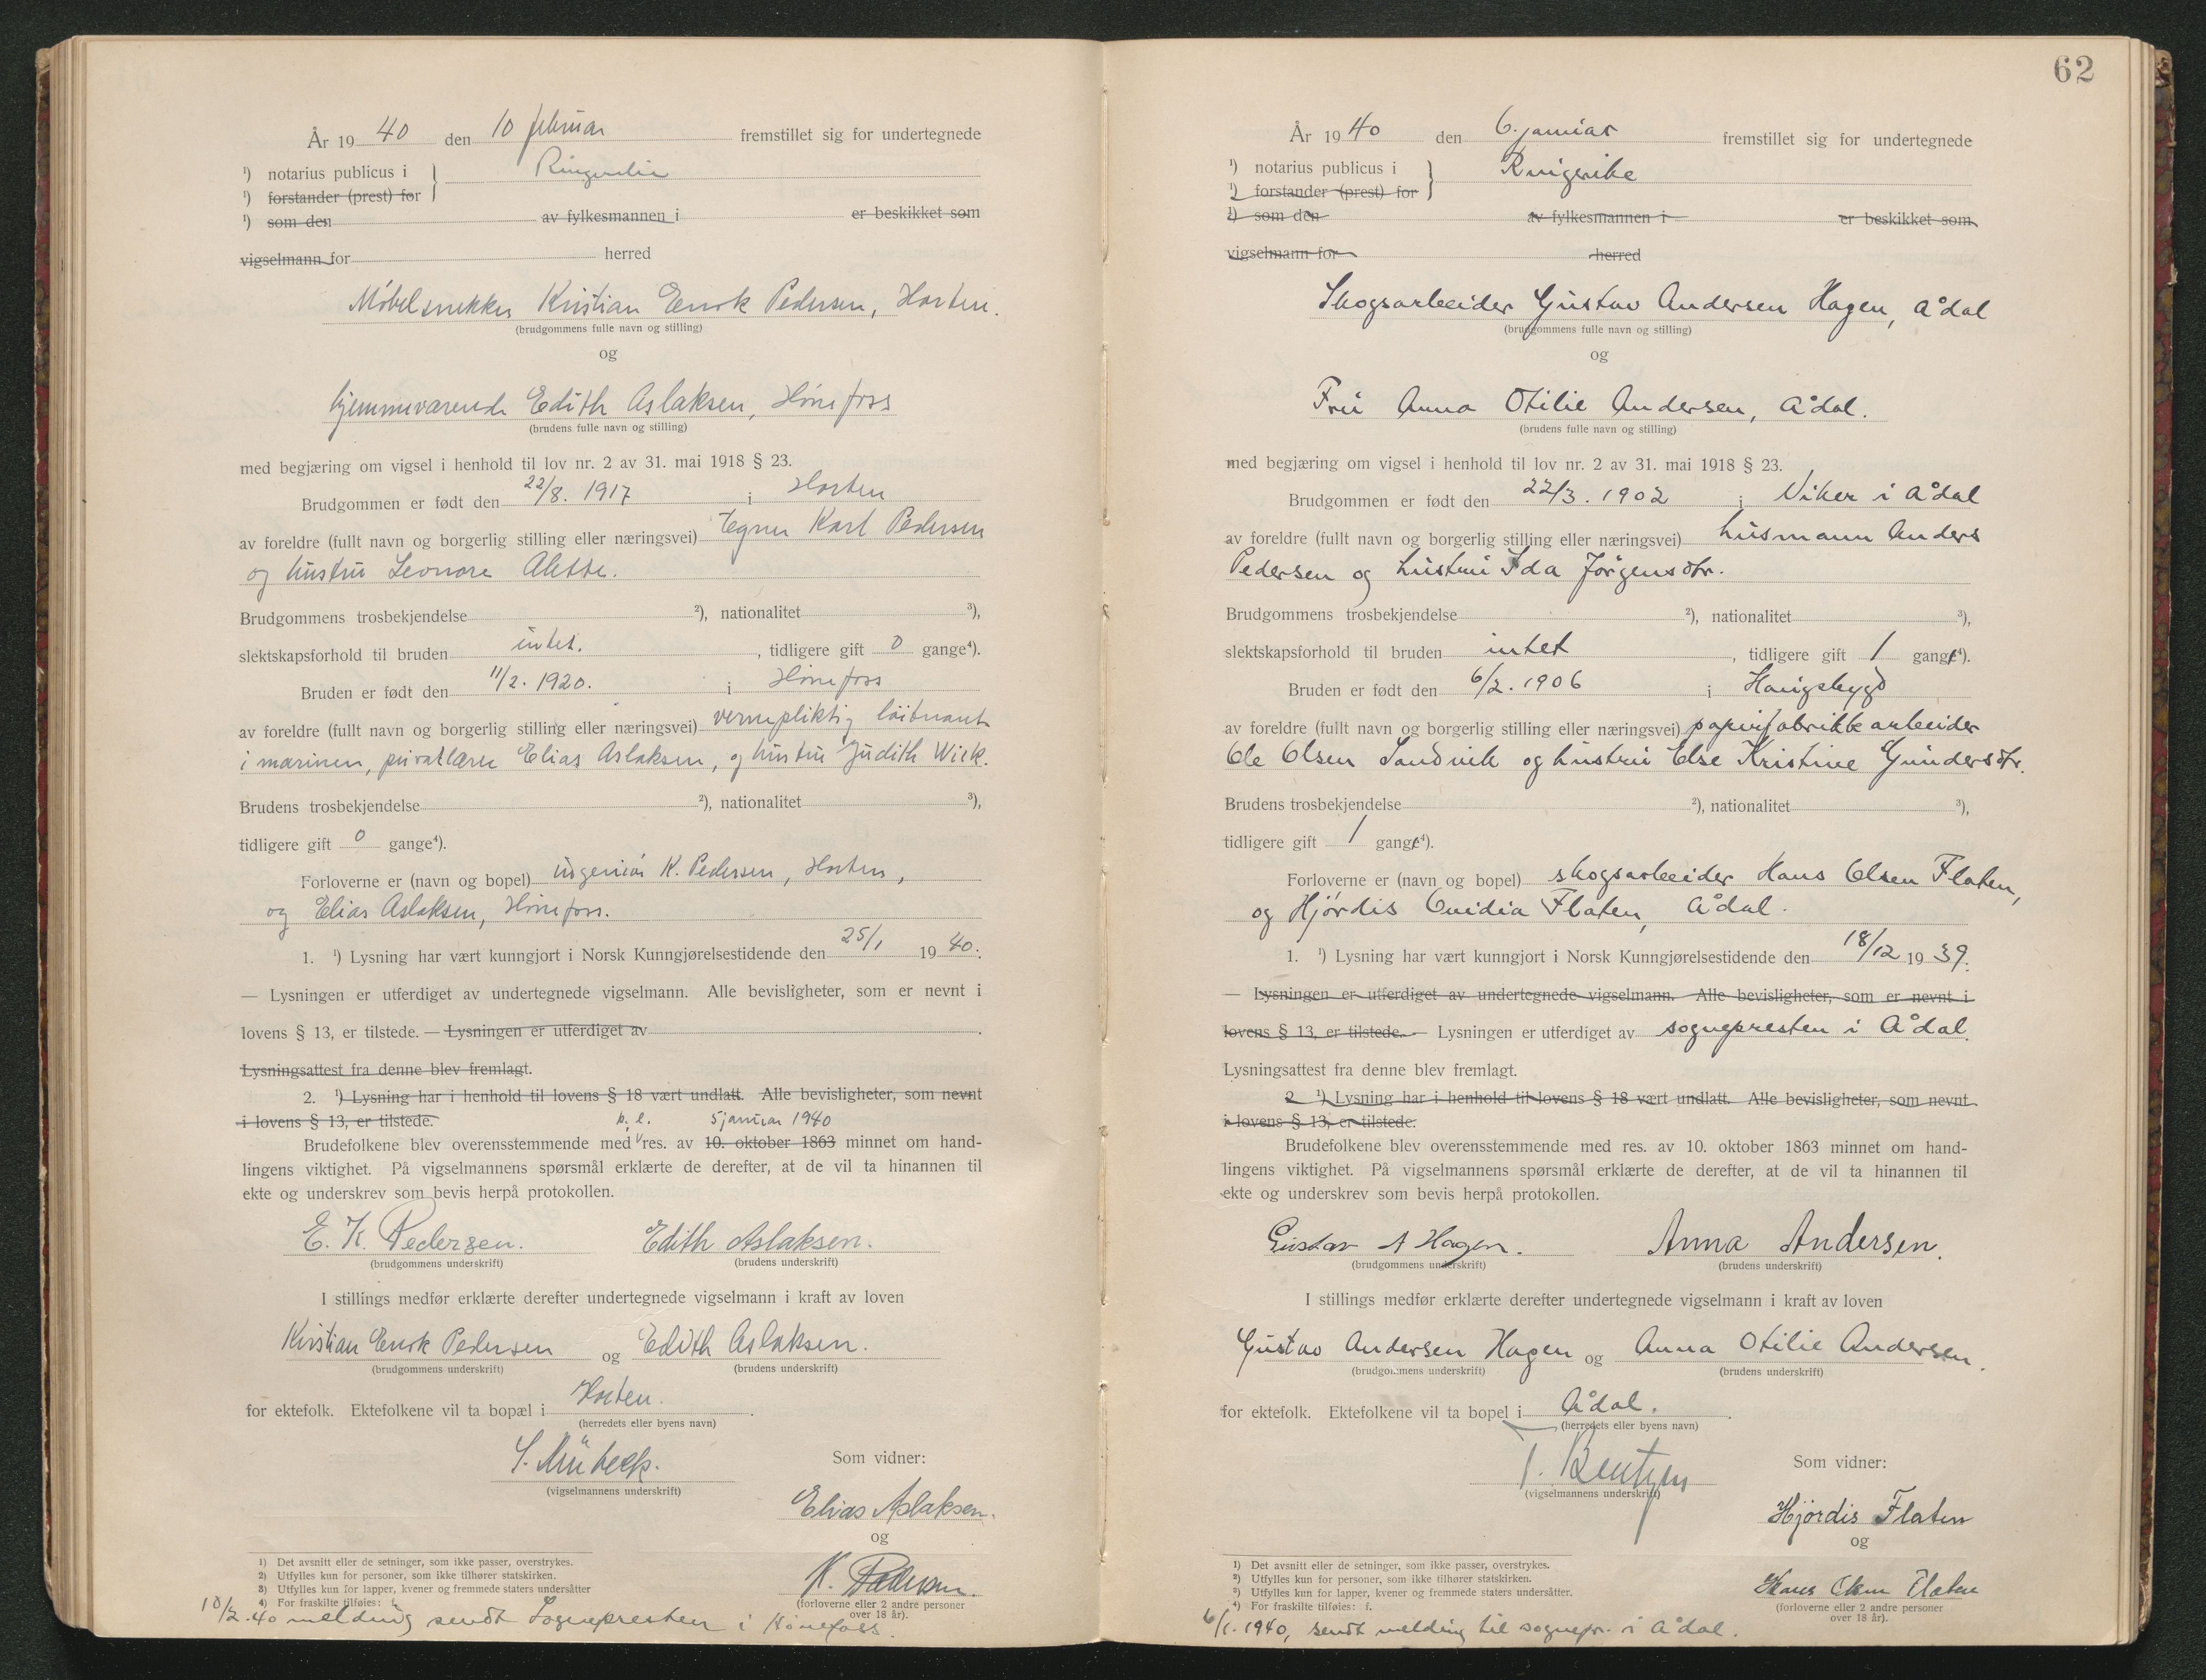 År 19 40 den 10 februar fremstillet sig for undertegnede
¹) notarius publicus i Ringerike
¹) forstander (prest) for
¹) som den av fylkesmannen i er beskikket som
vigselmann for herred
Møbelsnekker Kristian Enok Pedersen, Horten.
(brudgommens fulle navn og stilling)
og
hjemmeværende Edith Aslaksen, Hønefoss
(brudens fulle navn og stilling)
med begjæring om vigsel i henhold til lov nr. 2 av 31. mai 1918 § 23.
Brudgommen er født den 22/8. 1917 i Horten
av foreldre (fullt navn og borgerlig stilling eller næringsvei) tegner Karl Pedersen
og hustru Leonore Alette.
Brudgommens trosbekjendelse ²), nationalitet ³),
slektskapsforhold til bruden intet. , tidligere gift 0 gange⁴).
Bruden er født den 11/2. 1920. i Hønefoss
av foreldre (fullt navn og borgerlig stilling eller næringsvei) vernepliktig løitnant
i marinen, privatlærer Elias Aslaksen, og hustru Judith Wick.
Brudens trosbekjendelse ²), nationalitet ³),
tidligere gift 0 gange⁴).
Forloverne er (navn og bopel) ingeniør K. Pedersen, Horten,
og Elias Aslaksen, Hønefoss.
1. ¹) Lysning har vært kunngjort i Norsk Kunngjørelsestidende den 25/1 19 40.
— Lysningen er utferdiget av undertegnede vigselmann. Alle bevisligheter, som er nevnt i
lovens § 13, er tilstede. — Lysningen er utferdiget av .
Lysningsattest fra denne blev fremlagt.
2. ¹) Lysning har i henhold til lovens § 18 vært undlatt. Alle bevisligheter, som nevnt
i lovens § 13, er tilstede. k. l. 5 januar 1940
Brudefolkene blev overensstemmende med res. av 10. oktober 1863 minnet om hand-
lingens viktighet. På vigselmannens spørsmål erklærte de derefter, at de vil ta hinannen til
ekte og underskrev som bevis herpå protokollen.
E. K. Pedersen. Edith Aslaksen.
(brudgommens underskrift) (brudens underskrift)
I stillings medfør erklærte derefter undertegnede vigselmann i kraft av loven
Kristian Enok Pedersen og Edith Aslaksen.
(brudgommens underskrift) (brudens underskrift)
for ektefolk. Ektefolkene vil ta bopæl i Horten.
(herredets eller byens navn)
(vigselmannens underskrift)
Som vidner:
Elias Aslaksen.
og
K. Pedersen.
(forloverne eller 2 andre personer
over 18 år).
1) Det avsnitt eller de setninger, som ikke passer, overstrykes.
2) Utfylles kun for personer, som ikke tilhører statskirken.
3) Utfylles kun for lapper, kvener og fremmede staters undersåtter
4) For fraskilte tilføies:
10/2.40 melding sendt Sognepresten i Hønefoss.
62
År 19 40 den 6. januar fremstillet sig for undertegnede
¹) notarius publicus i Ringerike
¹) forstander (prest) for
¹) som den av fylkesmannen i er beskikket som
vigselmann for herred
Skogsarbeider Gustav Andersen Hagen, Ådal
(brudgommens fulle navn og stilling)
og
Fru Anna Otilie Andersen, Ådal.
(brudens fulle navn og stilling)
med begjæring om vigsel i henhold til lov nr. 2 av 31. mai 1918 § 23.
Brudgommen er født den 22/3. 1902 i Viker i Ådal
av foreldre (fullt navn og borgerlig stilling eller næringsvei) husmann Anders
Pedersen og hustru Ida Jørgensdtr.
Brudgommens trosbekjendelse ²), nationalitet ³),
slektskapsforhold til bruden intet , tidligere gift 1 gange⁴).
Bruden er født den 6/2. 1906 i Haugsbygd
av foreldre (fullt navn og borgerlig stilling eller næringsvei) papirfabrikkarbeider
Ole Olsen Sandvik og hustru Else Kristine Gundersdtr.
Brudens trosbekjendelse ²), nationalitet ³),
tidligere gift 1 gange⁴).
Forloverne er (navn og bopel) skogsarbeider Hans Olsen Flaten,
og Hjørdis Ovidia Flaten, Ådal.
1. ¹) Lysning har vært kunngjort i Norsk Kunngjørelsestidende den 18/12 19 39.
— Lysningen er utferdiget av undertegnede vigselmann. Alle bevisligheter, som er nevnt i
lovens § 13, er tilstede. — Lysningen er utferdiget av sognepresten i Ådal.
Lysningsattest fra denne blev fremlagt.
2 ¹) Lysning har i henhold til lovens § 18 vært undlatt. Alle bevisligheter, som nevnt
i lovens § 13, er tilstede.
Brudefolkene blev overensstemmende med res. av 10. oktober 1863 minnet om hand-
lingens viktighet. På vigselmannens spørsmål erklærte de derefter, at de vil ta hinannen til
ekte og underskrev som bevis herpå protokollen.
Gustav A Hagen. Anna Andersen.
(brudgommens underskrift) (brudens underskrift)
I stillings medfør erklærte derefter undertegnede vigselmann i kraft av loven
Gustav Andersen Hagen og Anna Otilie Andersen.
(brudgommens underskrift) (brudens underskrift)
for ektefolk. Ektefolkene vil ta bopel i Ådal.
(herredets eller byens navn)
T. Bentzen
(vigselmannens underskrift)
Som vidner:
Hjørdis Flaten
og
Hans Olsen Flaten
(forloverne eller 2 andre personer
over 18 år).
1) Det avsnitt eller de setninger, som ikke passer, overstrykes.
2) Utfylles kun for personer, som ikke tilhører statskirken.
3) Utfylles kun for lapper, kvener og fremmede staters undersåtter.
4) For fraskilte tilføies: f.
6/1. 1940, sendt melding til sognepr. i Ådal.